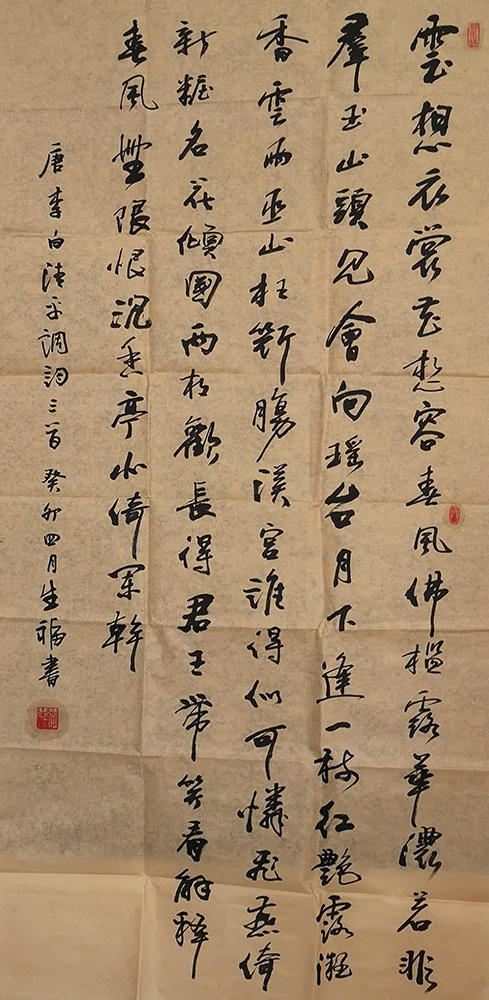 雲想衣裳花想容春風佛檻露華濃若非
羣玉山頭見會向瑶台月下逢一枝红艷露凝
香雲雨巫山枉斷腸漢宫誰得似可憐飛燕倚
新糚名花傾國兩相歡長得君王帶笑看解釋
春風無限恨沉香亭北倚闌幹
唐李白清平調詞三首 癸卯四月生福書